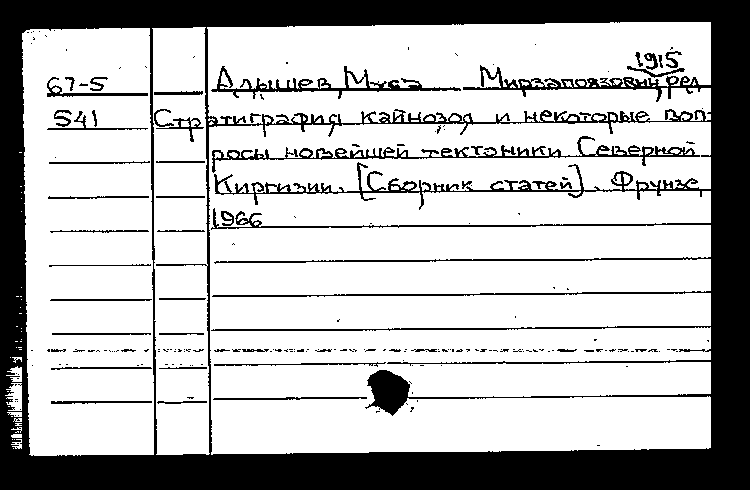 1915
67-5 Адышев, Муса Мирзапоязович, ред.
541 Стратиграфия кайнозоя и некоторые воп-
росы новейшей тектоники Северной
Киргизии. [Сборник статей]. Фрунзе,
1966